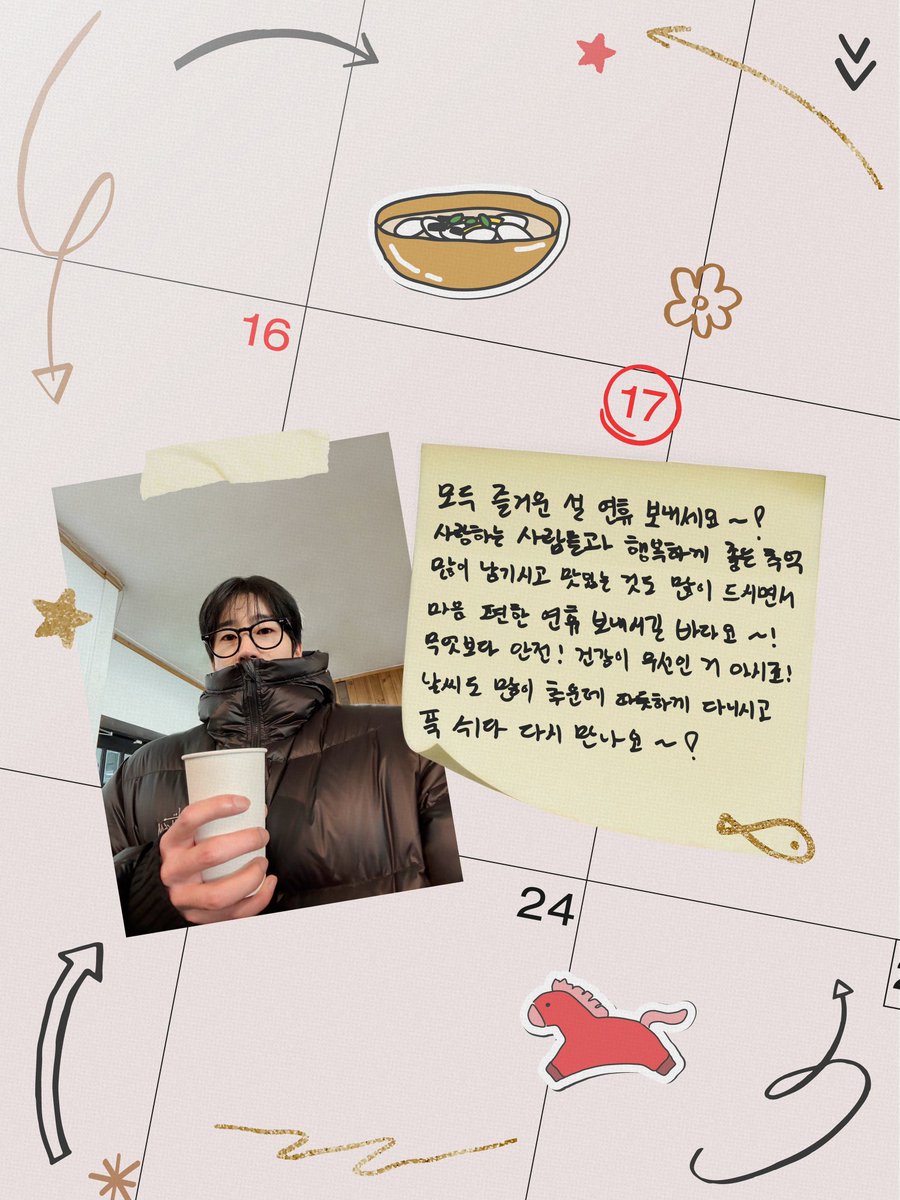 16
17
모두 즐거운 설 연휴 보내세요~!
사랑하는 사람들과 행복하게 좋은 추억
많이 남기시고 맛있는 것도 많이 드시면서
마음 편한 연휴 보내시길 바라요~!
무엇보다 안전! 건강이 우선인 거 아시죠!
날씨도 많이 추운데 따뜻하게 다니시고
푹 쉬다 다시 만나요~!
24